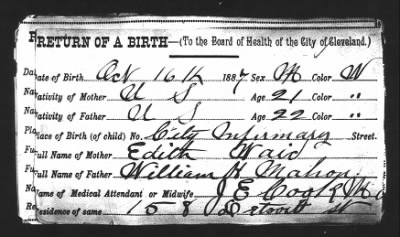 RETURN OF A BIRTH—(To the Board of Health of the City of Cleveland.)
Date of Birth Oct 16th 1887 Sex M Color W
Nativity of Mother U S Age 21 Color "
Nativity of Father U S Age 22 Color "
Place of Birth (of child) No. City Infirmary Street.
Full Name of Mother Edith Waid
Full Name of Father William H Mahon
Name of Medical Attendant or Midwife J E Cook M D
Residence of same 158 Detroit St